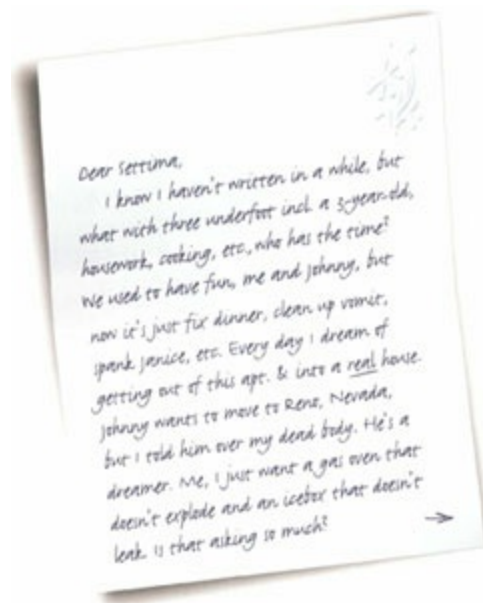 Dear Settima,
I know I haven't written in a while, but
what with three underfoot incl. a 3-year-old,
housework, cooking, etc., who has the time?
We used to have fun, me and Johnny, but
now it's just fix dinner, clean up vomit,
spank Janice, etc. Every day I dream of
getting out of this apt. & into a real house.
Johnny wants to move to Reno, Nevada,
but I told him over my dead body. He's a
dreamer. Me, I just want a gas oven that
doesn't explode and an icebox that doesn't
leak. Is that asking so much?